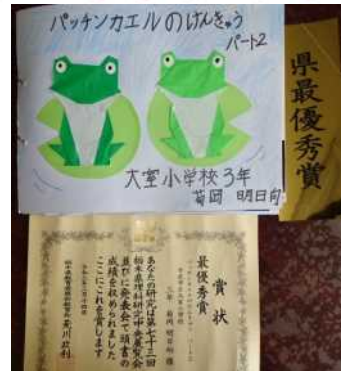 パッチンカエルのけんきゅう
パート2
大室小学校3年
菊岡 明日向
県最優秀賞
賞状
最優秀賞
あなたの研究は第七十三回
栃木県理科研究中央展覧会
並びに発表会で頭書の
成績を収められました
ここにこれを賞します